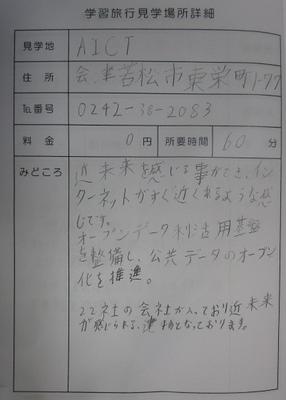 学習旅行見学場所詳細
見学地 AICT
住所 会津若松市東栄町1-77
℡番号 0242-38-2083
料金 0円 所要時間 60分
みどころ 近未来を感じる事ができ、イン
ターネットがすぐ近くれるような感
じです。
オープンデータ利活用基盤
を整備し、公共データのオープン
化を推進。
22社の会社が入っており近未来
が感じられる、建物となっております。